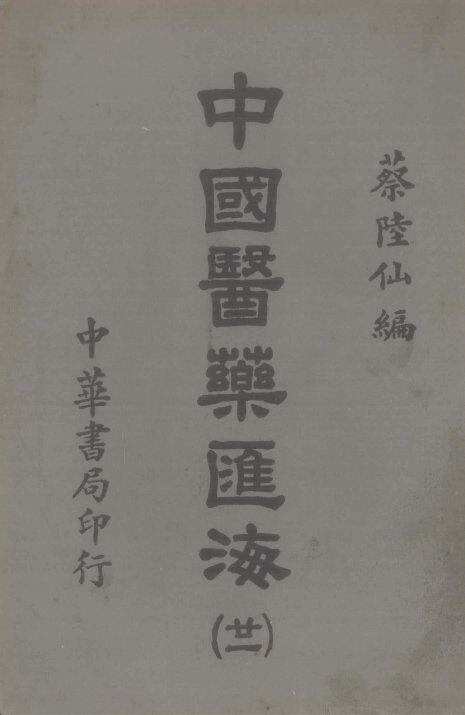 蔡陸仙編
中國醫藥匯海
(廿一)
中華書局印行